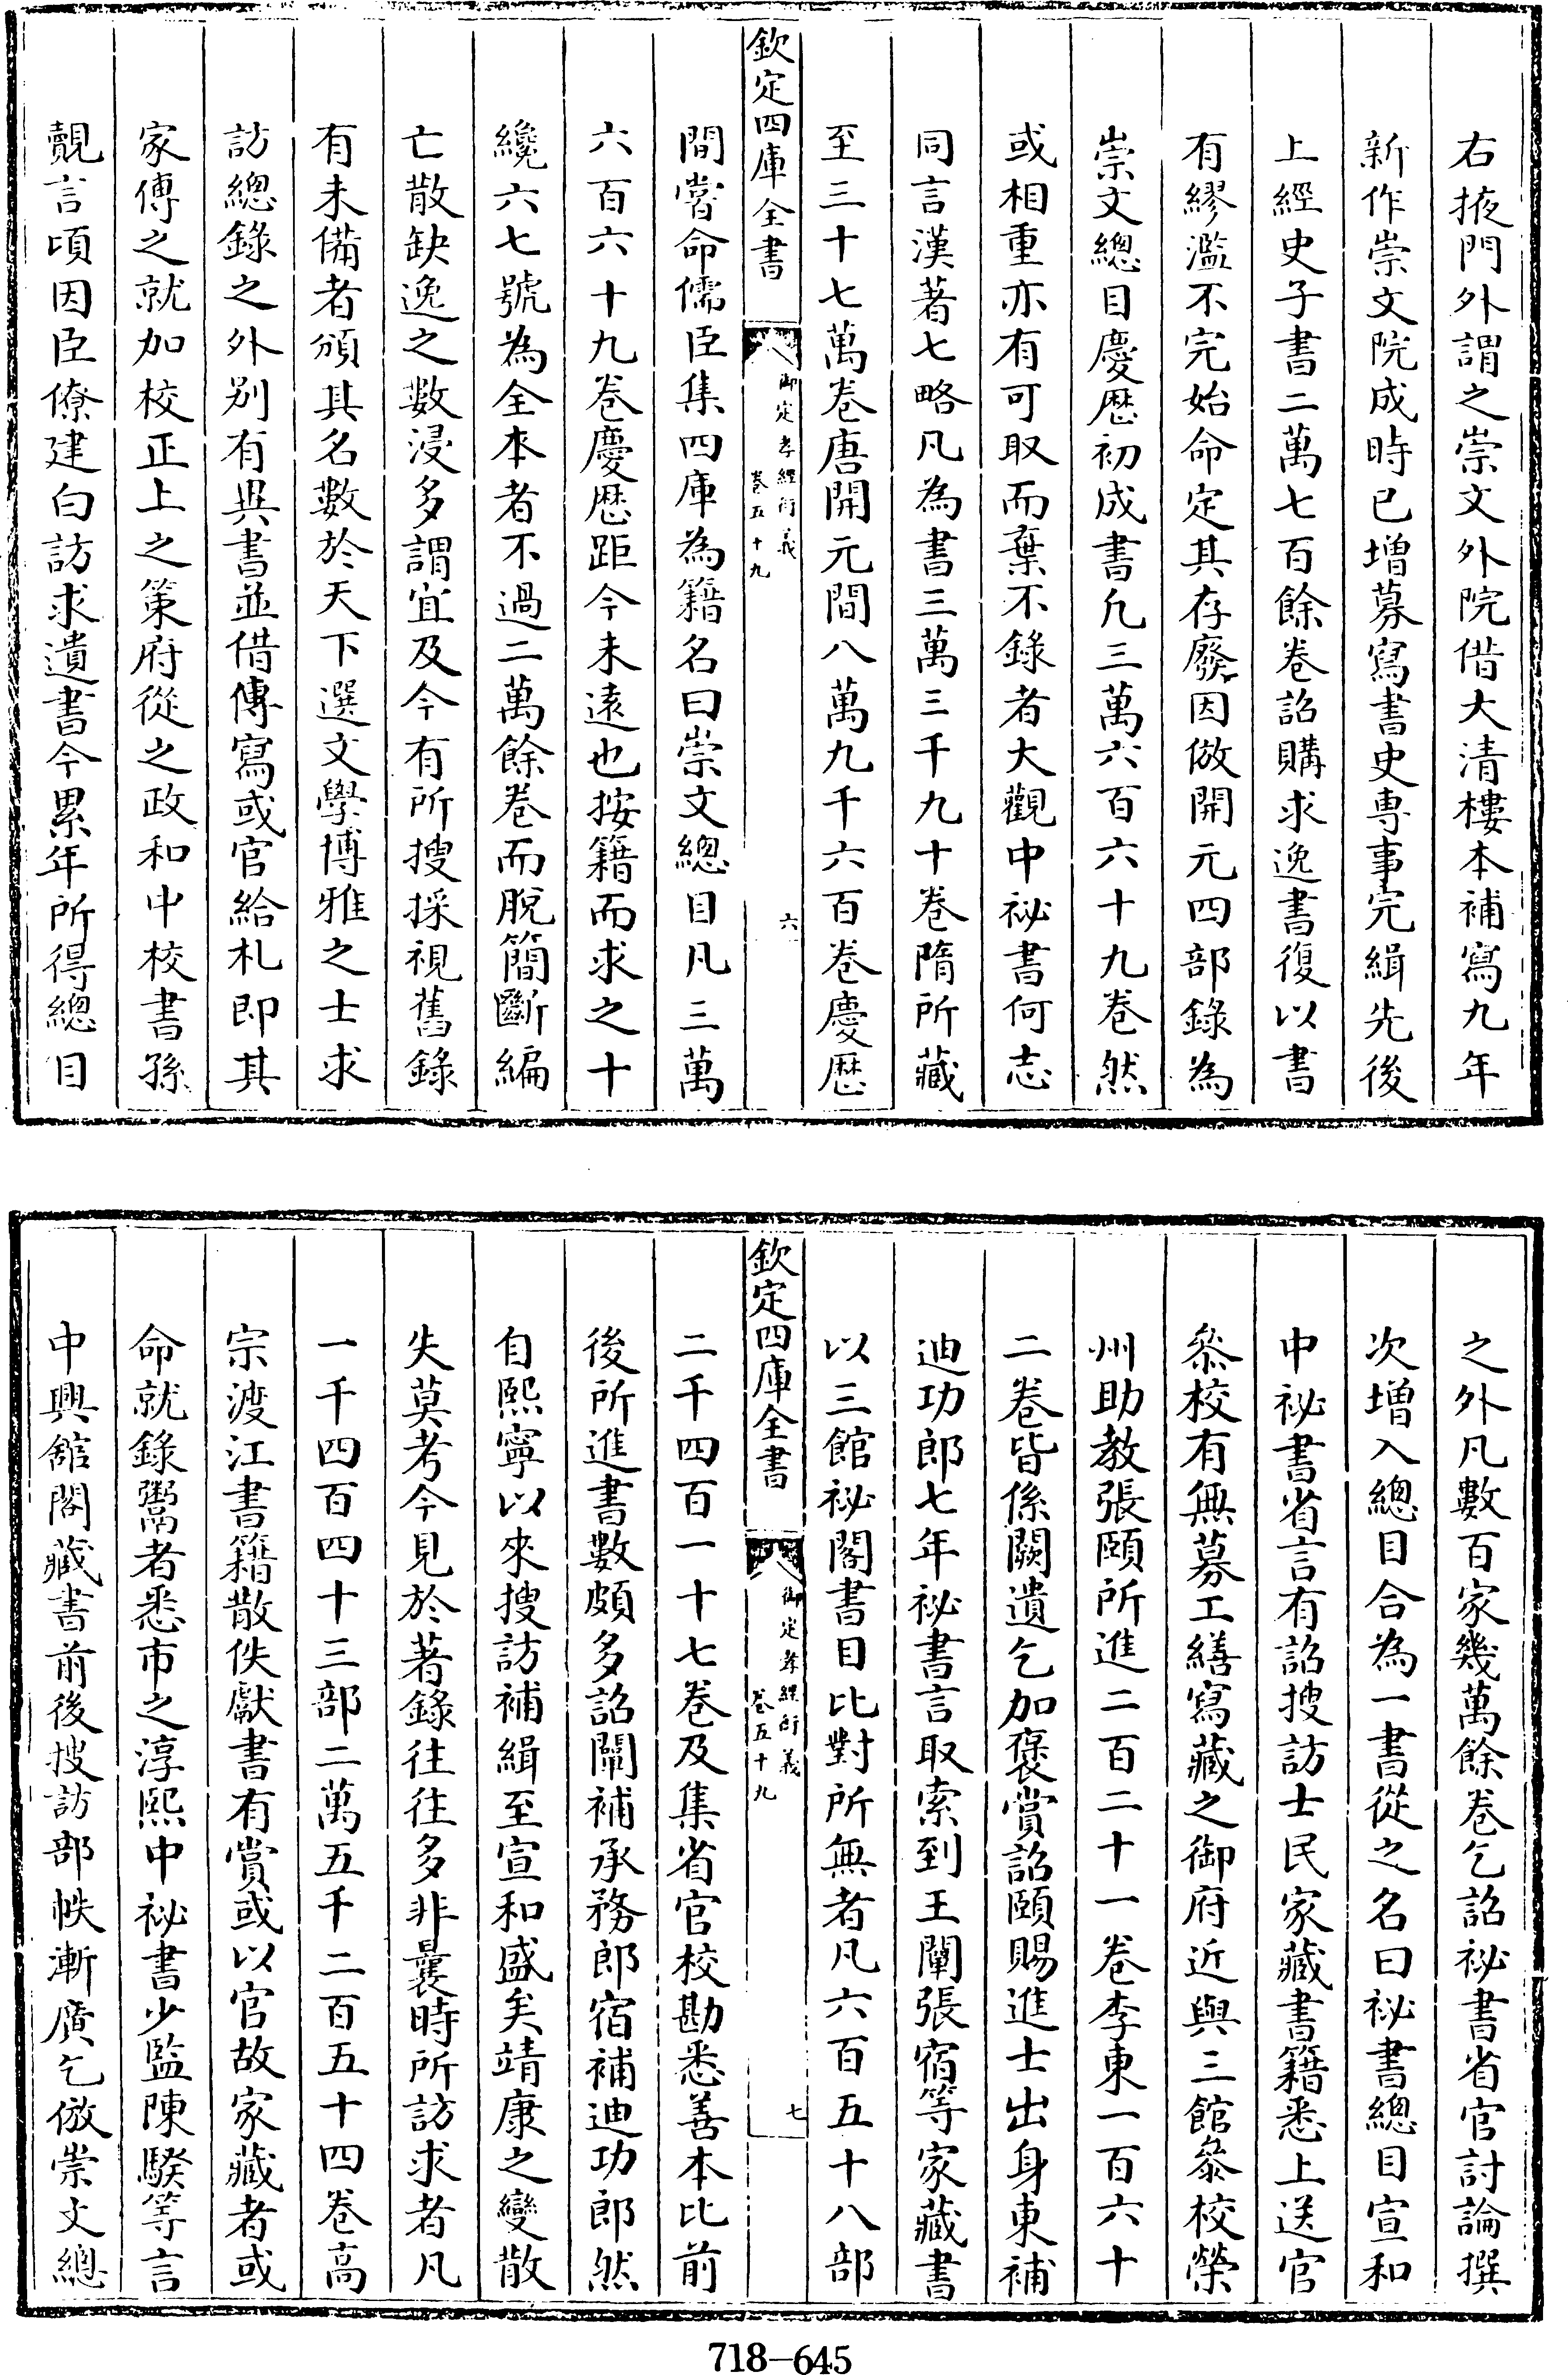 右掖門外謂之崇文外院借大清樓本補寫九年
新作崇文院成時已增募寫書史専事完緝先後
上經史子書二萬七百餘卷詔購求逸書復以書
有繆濫不完始命定其存廢因倣開元四部錄為
崇文總目慶厯初成書凡三萬六百六十九卷然
或相重亦有可取而棄不錄者大觀中祕書何志
同言漢著七略凡為書三萬三千九十卷隋所藏
至三十七萬卷唐開元間八萬九千六百卷慶厯
欽定四庫全書
御定孝經衍義
卷五十九
六
間嘗命儒臣集四庫為籍名曰崇文總目凡三萬
六百六十九卷慶厯距今未遠也按籍而求之十
纔六七號為全本者不過二萬餘卷而脫簡斷編
亡散缺逸之數浸多謂宜及今有所搜採視舊錄
有未備者頒其名數於天下選文學博雅之士求
訪總錄之外別有異書並借傳寫或官給札即其
家傳之就加校正上之策府從之政和中校書孫
覿言頃因臣僚建白訪求遺書今累年所得總目
之外凡數百家幾萬餘卷乞詔祕書省官討論撰
次增入總目合為一書從之名曰祕書總目宣和
中祕書省言有詔搜訪士民家藏書籍悉上送官
叅校有無募工繕寫藏之御府近與三館叅校榮
州助教張頤所進二百二十一卷李東一百六十
二卷皆係闕遺乞加褒賞詔頤賜進士出身東補
迪功郎七年祕書言取索到王闡張宿等家藏書
以三館祕閣書目比對所無者凡六百五十八部
欽定四庫全書
御定孝經衍義
卷五十九
七
二千四百一十七卷及集省官校勘悉善本比前
後所進書數頗多詔闡補承務郎宿補迪功郎然
自熙寧以來搜訪補緝至宣和盛矣靖康之變散
失莫考今見於著錄往往多非曩時所訪求者凡
一千四百四十三部二萬五千二百五十四卷高
宗渡江書籍散佚獻書有賞或以官故家藏者或
命就錄鬻者悉市之淳熙中祕書少監陳騤等言
中興舘閣藏書前後搜訪部帙漸廣乞倣崇文總
718-645